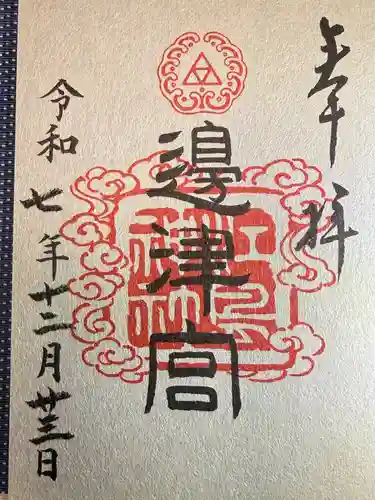 奉拝
邊津宮
令和七年十二月廿三日